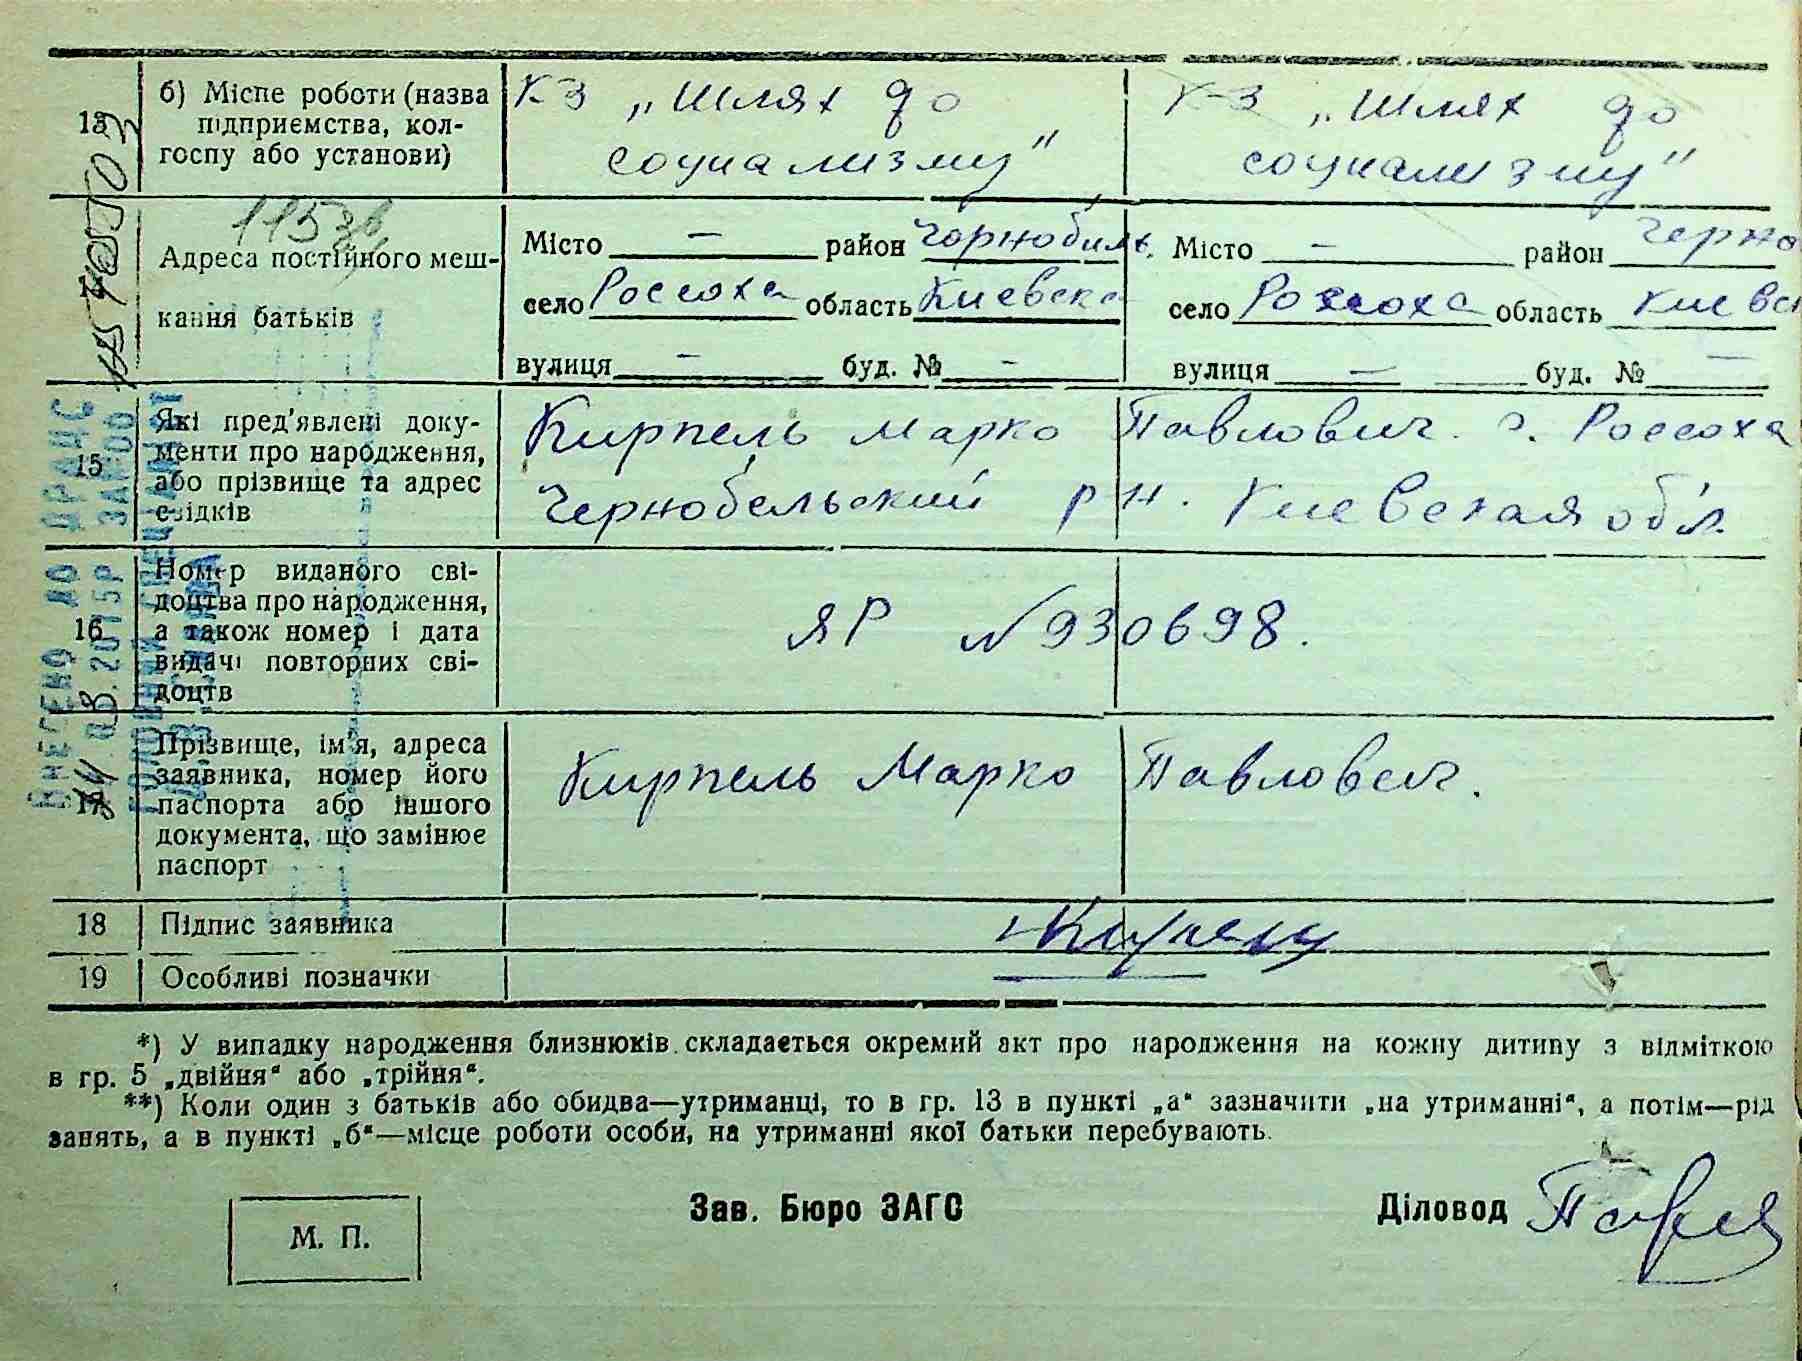 13 б) Місце роботи (назва підприємства, колгоспу або установи)
к-з „Шлях до
социализму"
к-з „Шлях до
социализму"
115 зв
Адреса постійного мешкання батьків
Місто — район Чорнобильс.
село Россоха область Киевска
вулиця — буд. № —
Місто — район Черно
село Россоха область Киевс
вулиця — буд. № —
15 Які пред'явлені документи про народження, або прізвище та адрес свідків
Кирпель Марко Павлович. с. Россоха
Чернобельский р н. Киевская обл.
16 Номер виданого свідоцтва про народження, а також номер і дата видачі повторних свідоцтв
ЯР № 930698.
17 Прізвище, ім'я, адреса заявника, номер його паспорта або іншого документа, що замінює паспорт
Кирпель Марко Павлович.
18 Підпис заявника
19 Особливі позначки —
ВНЕСЕНО ДО ДРАЦС
2015Р ЗА №00
ГОЛОВНИЙ СПЕЦІАЛІСТ
*) У випадку народження близнюків складається окремий акт про народження на кожну дитину з відміткою
в гр. 5 „двійня" або „трійня".
**) Коли один з батьків або обидва—утриманці, то в гр. 13 в пункті „а" зазначити „на утриманні", а потім—рід
занять, а в пункті „б"—місце роботи особи, на утриманні якої батьки перебувають.
М. П.
Зав. Бюро ЗАГС
Діловод